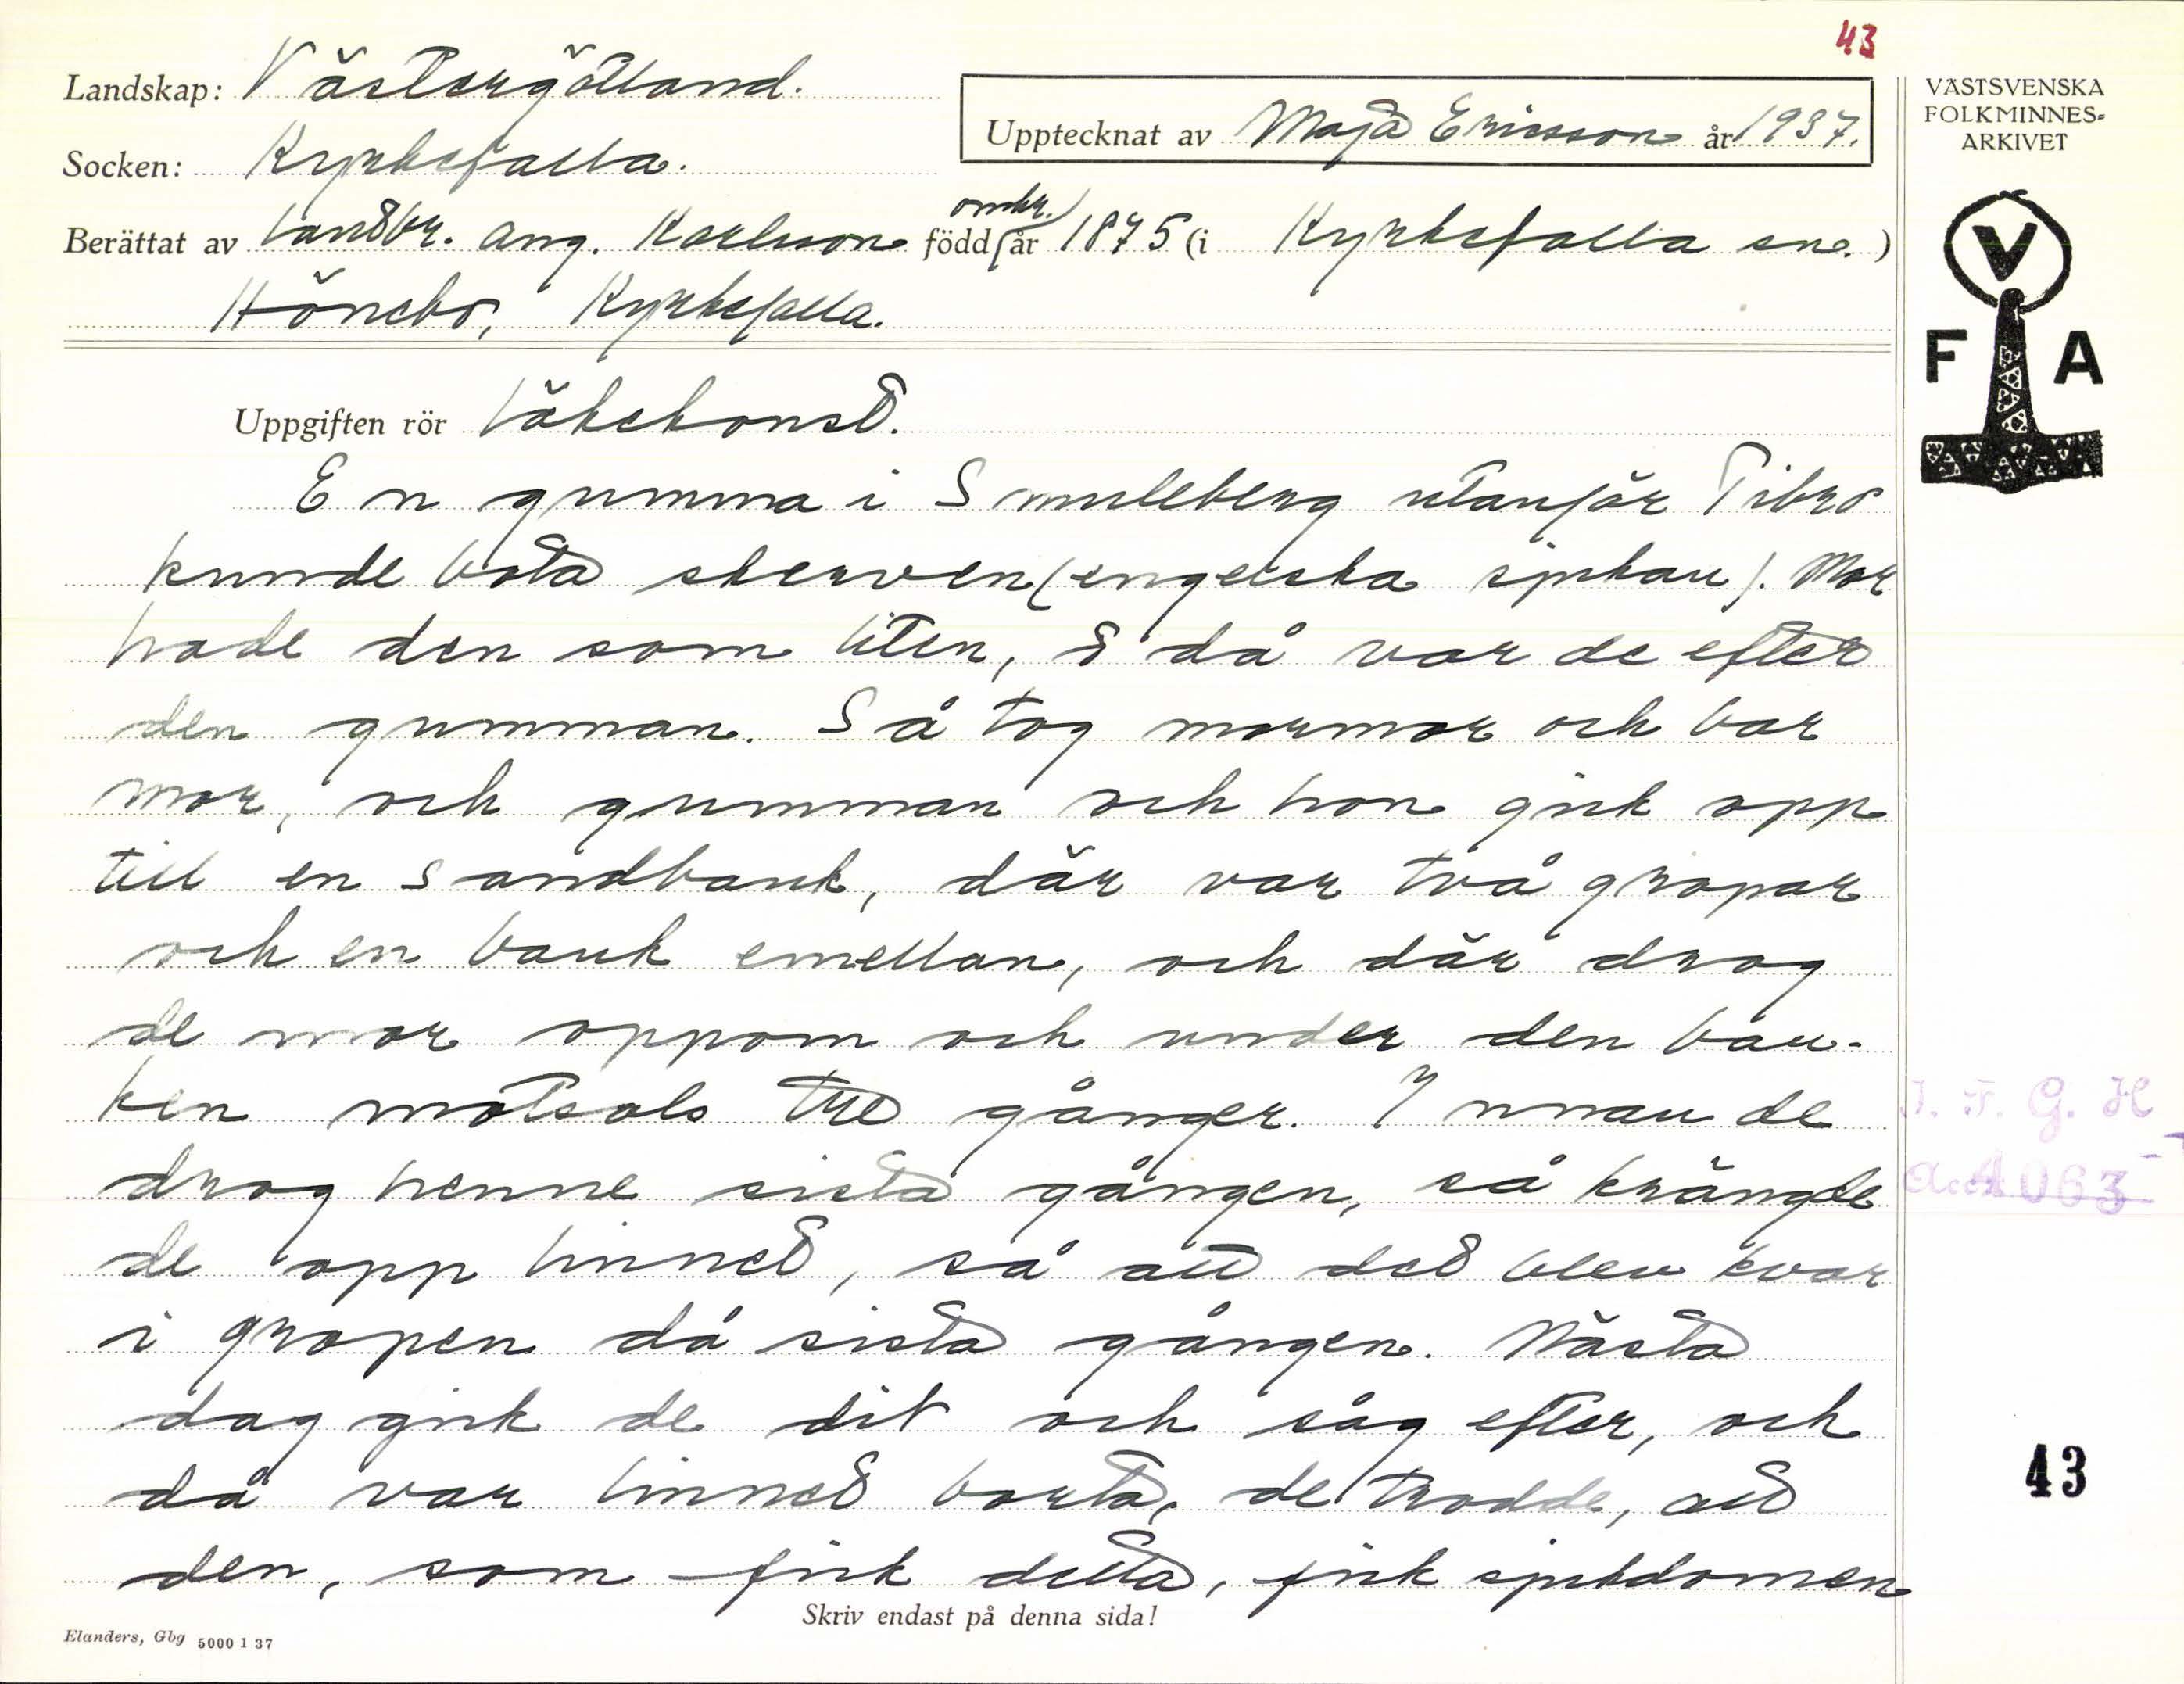 43
Landskap: Västergötland.
Socken: Kyrkefalla.
Upptecknat av Maja Ericsson år 1937.
Berättat av Landbr. Aug. Karlsson född omkr. år 1875 (i Kyrkefalla sn.)
Hönebo, Kyrkefalla.
VÄSTSVENSKA
FOLKMINNES-
ARKIVET
V
F A
Uppgiften rör Läkekonst.
En gumma i Smuleberg utanför Tibro
kunde bota skerven (engelska sjukan). Mor
hade den som liten, å då var de efter
den gumman. Så tog mormor och bar
mor, och gumman och hon gick opp
till en sandbank, där var två gropar
och en bank emellan, och där drog
de mor oppom och under den ban-
ken motsols tre gånger. Innan de
drog henne sista gången, så krängde
de opp linnet, så att det blev kvar
i gropen då sista gången. Nästa
dag gick de dit och såg efter, och
då var linnet borta, de trodde, att
den, som fick detta, fick sjukdomen
I. F. G. H
Acc. 4063
43
Skriv endast på denna sida!
Elanders, Gbg 5000 1 37